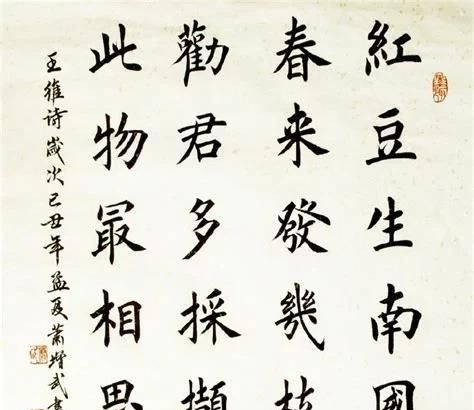 紅豆生南國
春來發幾枝
勸君多採擷
此物最相思
王維诗歲次己丑年孟夏萧增武書